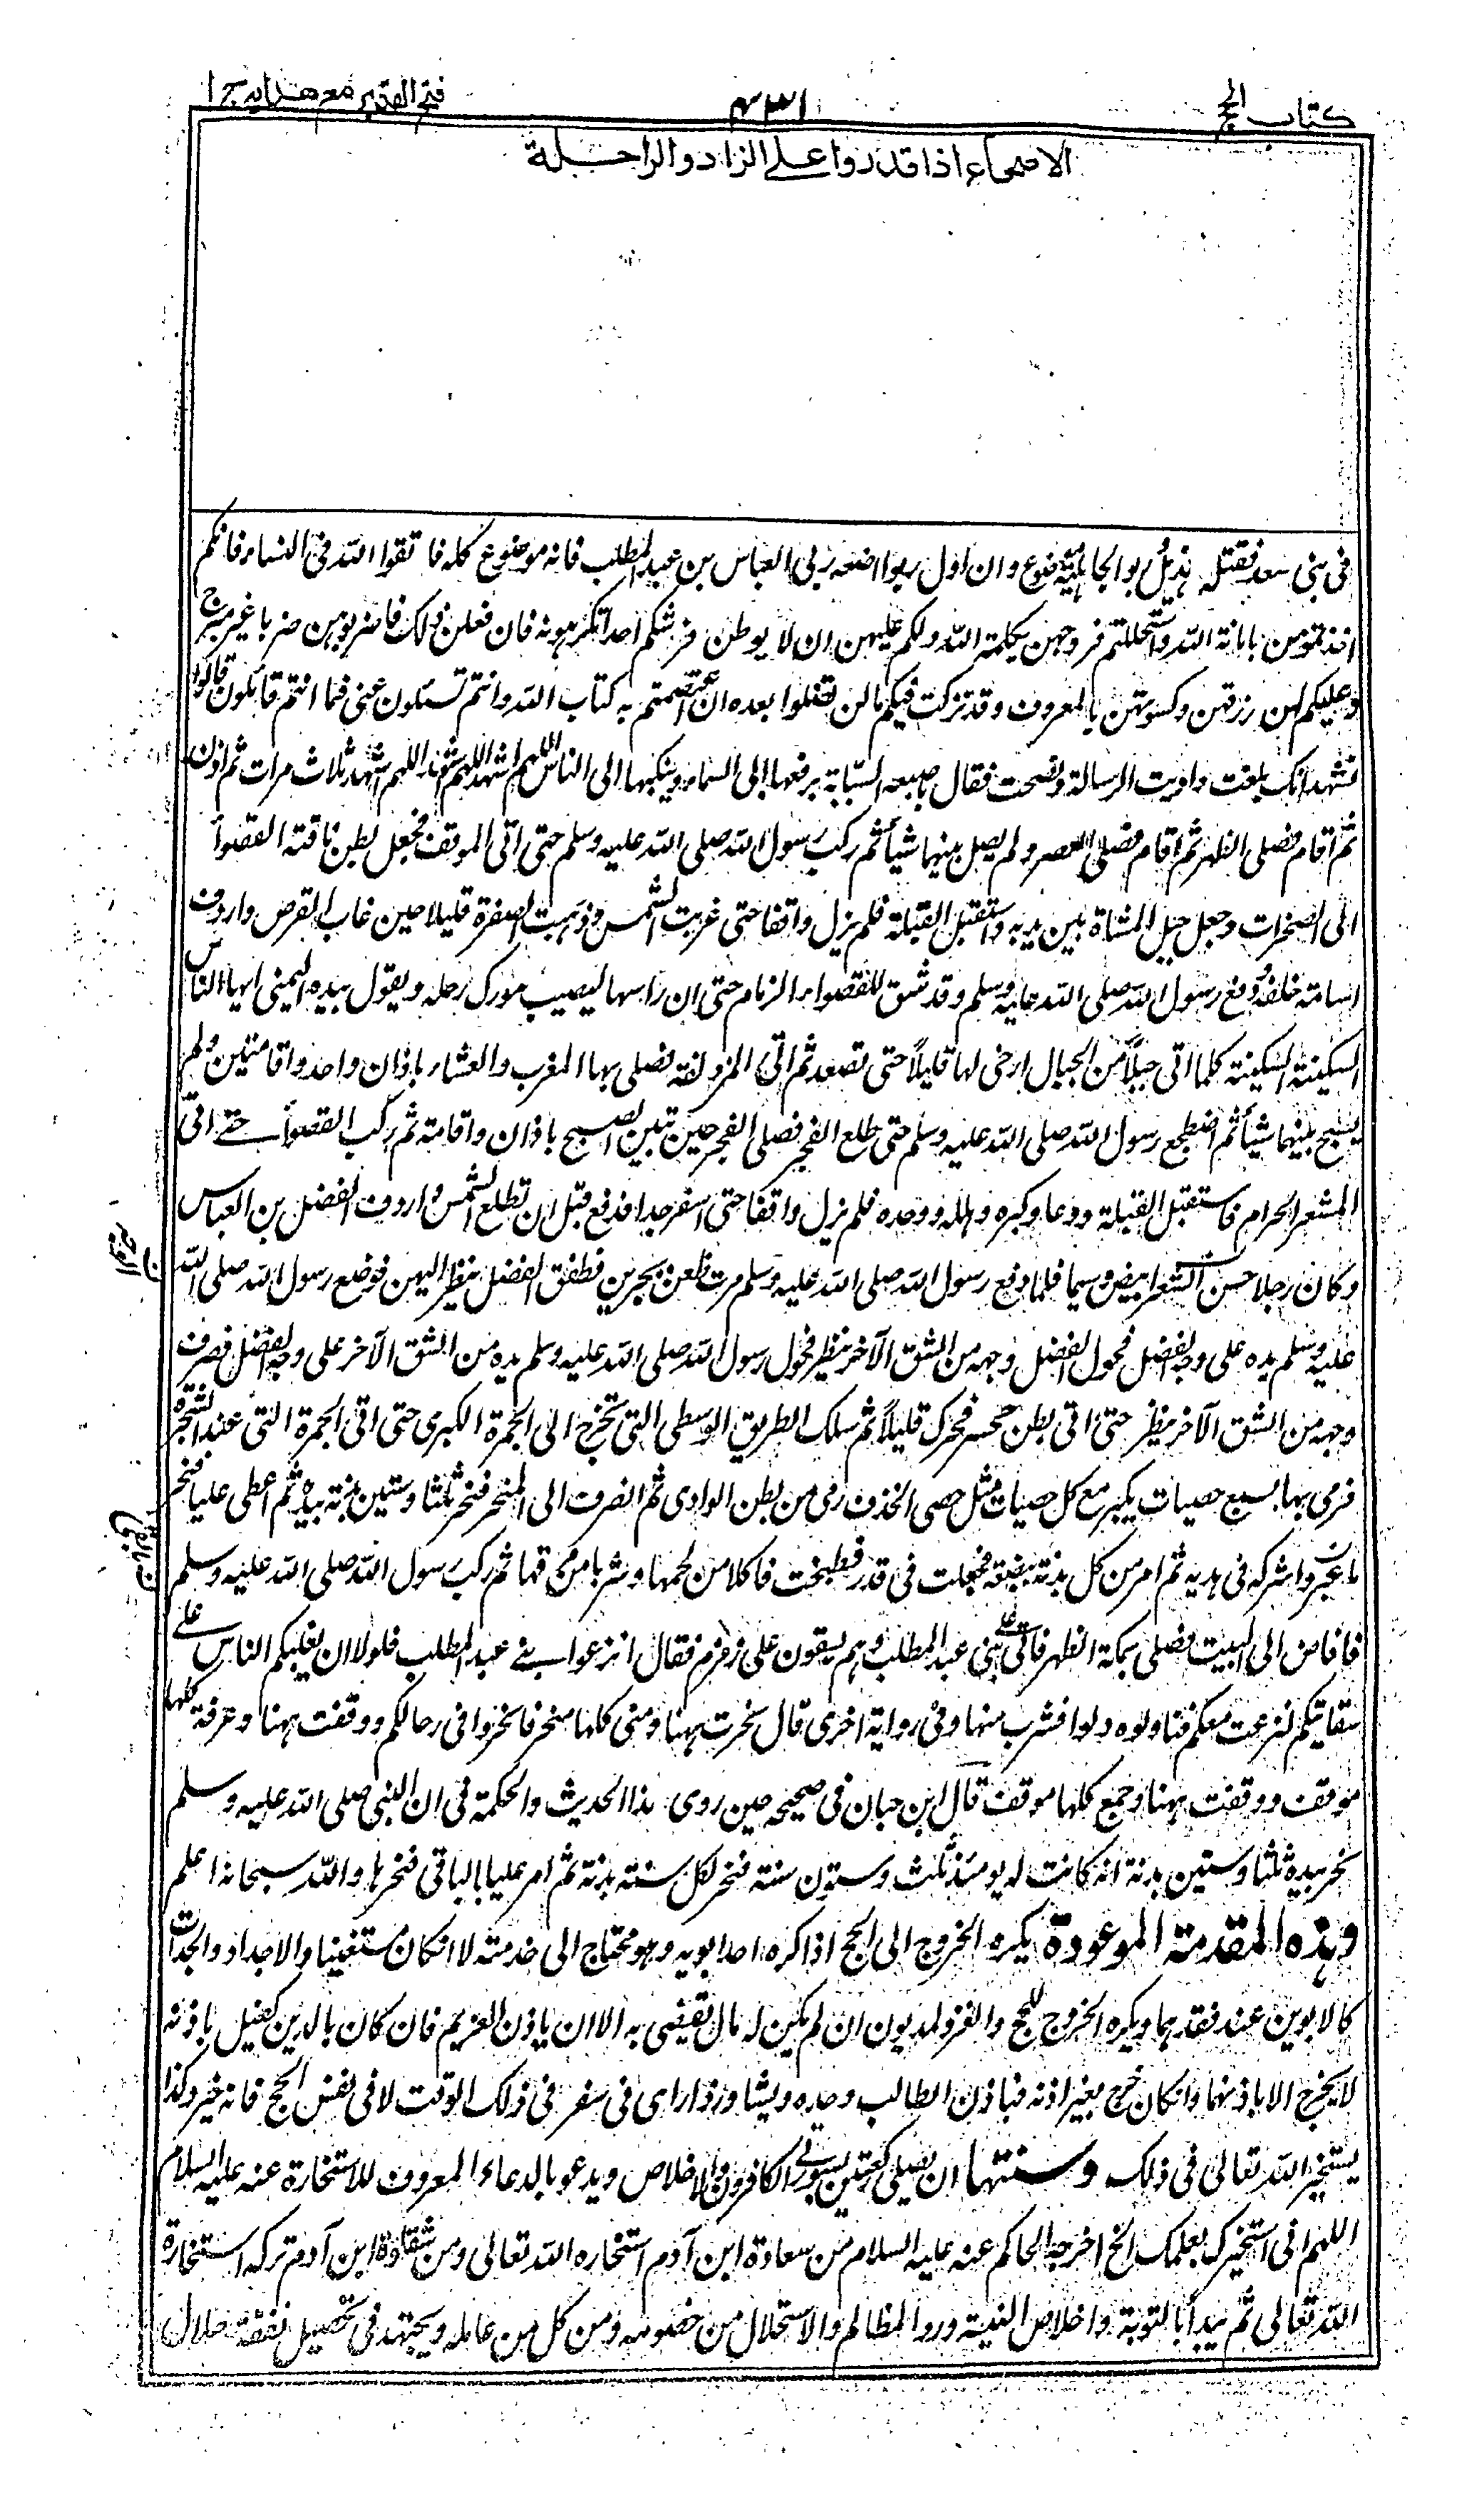 كتاب الحج
٤٣١
فتح القدير مع هدايه ج ١
الاصحاء اذا قدروا على الزاد والراحلة
فى بنى سعد فقتلته هذيل وربوا الجاهلية موضوع وان اول ربوا اضعه ربى العباس بن عبد المطلب فانه موضوع كله فاتقوا الله فى النساء فانكم
اخذتموهن بامانة الله واستحللتم فروجهن بكلمة الله ولكم عليهن ان لا يوطن فرشكم احدا تكرهونه فان فعلن ذلك فاضربوهن ضربا غير مبرح
وعليكم لهن رزقهن وكسوتهن بالمعروف وقد تركت فيكم ما لن تضلوا بعده ان اعتصمتم به كتاب الله وانتم تسئلون عنى فما انتم قائلون قالوا
نشهد انك بلغت واديت الرسالة ونصحت فقال باصبعه السبابة يرفعها الى السماء وينكبها الى الناس اللهم اشهد اللهم اشهد اللهم اشهد ثلاث مرات ثم اذن
ثم اقام فصلى الظهر ثم اقام فصلى العصر ولم يصل بينهما شيأ ثم ركب رسول الله صلى الله عليه وسلم حتى اتى الموقف فجعل بطن ناقته القصوأ
الى الصخرات وجعل حبل المشاة بين يديه واستقبل القبلة فلم يزل واقفا حتى غربت الشمس وذهبت الصفرة قليلا حين غاب القرص واردف
اسامة خلفه ودفع رسول الله صلى الله عليه وسلم وقد شنق للقصواء الزمام حتى ان راسها ليصيب مورك رحله ويقول بيده اليمنى ايها الناس
السكينة السكينة كلما اتى حبلاً من الجبال ارخى لها قليلاً حتى تصعد ثم اتى المزدلفة فصلى بها المغرب والعشاء باذان واحد واقامتين ولم
يسبح بينهما شيأ ثم اضطجع رسول الله صلى الله عليه وسلم حتى طلع الفجر فصلى الفجر حين تبين الصبح باذان واقامة ثم ركب القصوأ حتے اتى
المشعر الحرام فاستقبل القبلة ودعا وكبره وهلله ووحده فلم يزل واقفا حتى اسفر جدا فدفع قبل ان تطلع الشمس واردف الفضل بن العباس
وكان رجلا حسن الشعر ابيض وسيما فلما دفع رسول الله صلى الله عليه وسلم مرت ظعن يجرين فطفق الفضل ينظر اليهن فوضع رسول الله صلى الله
عليه وسلم يده على وجه الفضل فحول الفضل وجهه من الشق الآخر ينظر فحول رسول الله صلى الله عليه وسلم يده من الشق الآخر على وجه الفضل فصرف
وجهه من الشق الآخر ينظر حتى اتى بطن محسر فحرك قليلاً ثم سلك الطريق الوسطى التى تخرج الى الجمرة الكبرى حتى اتى الجمرة التى عند الشجرة
فرمى بها بسبع حصيات يكبر مع كل حصيات مثل حصى الخذف رمى من بطن الوادى ثم انصرف الى المنحر فنحر ثلثا وستين بدنة بيده ثم اعطى عليا فنحر
ما غبر واشركه فى هديه ثم امر من كل بدنة ببضعة فجعلت فى قدر فطبخت فاكلا من لحمها وشربا من مرقها ثم ركب رسول الله صلى الله عليه وسلم
فافاض الى البيت فصلى بمكة الظهر فاتى على بنى عبد المطلب وهم يسقون على زمزم فقال انزعوا بنے عبد المطلب فلولا ان يغلبكم الناس علے
سقايتكم لنزعت معكم فناولوه دلوا فشرب منها وفى رواية اخرى قال نحرت ههنا ومنى كلها منحر فانحروا فى رحالكم ووقفت ههنا وعرفة كلها
موقف ووقفت ههنا وجمع كلها موقف قال ابن حبان فى صحيحه حين روى هذا الحديث والحكمة فى ان النبى صلى الله عليه وسلم
نحر بيده ثلثا وستين بدنة انه كانت له يومئذ ثلث وستون سنة فنحر لكل سنة بدنة ثم امر عليا بالباقى فنحرها والله سبحانه اعلم
وهذه المقدمة الموعودة يكره الخروج الى الحج اذا كره احد ابويه وهو محتاج الى خدمته لا ان كان مستغنيا والاجداد والجدات
كالابوين عند فقدهما ويكره الخروج للحج والغزو لمديون ان لم يكن له مال يقضى به الا ان ياذن الغريم فان كان بالدين كفيل باذنه
لا يخرج الا باذنهما وان كان خرج بغير اذنه فباذن الطالب وحده ويشاور ذا راى فى سفره فى ذلك الوقت لا فى نفس الحج فانه خير وكذا
يستخير الله تعالى فى ذلك وسنتها ان يصلى ركعتين بسورتى الكافرون والاخلاص ويدعو بالدعاء المعروف للاستخارة عنه عليه السلام
اللهم انى استخيرك بعلمك الخ اخرجه الحاكم عنه عليه السلام من سعادة ابن آدم استخاره الله تعالى ومن شقاوة ابن آدم تركه استخارة
الله تعالى ثم يبدأ بالتوبة واخلاص النية ورد المظالم والاستحلال من خصومه ومن كل من عامله ويجتهد فى تحصيل نفقة حلال